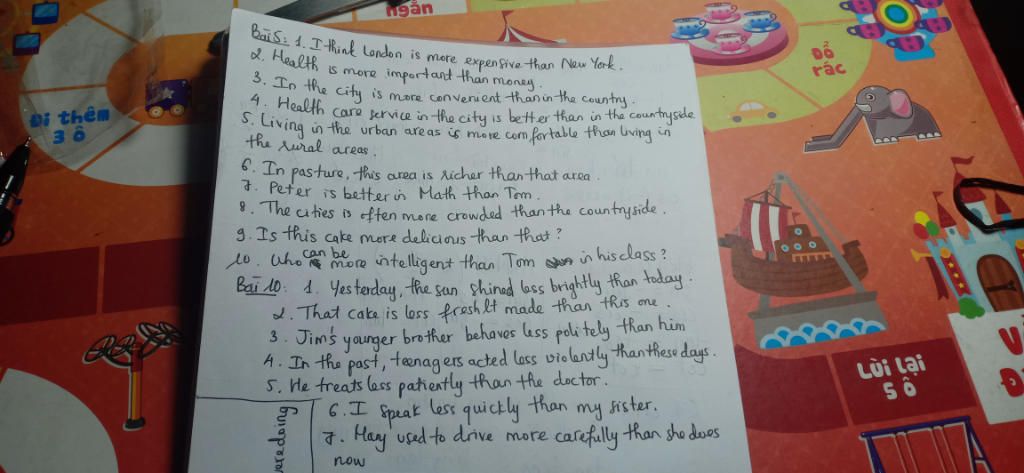 ngắn
Đi thêm
3 ô
Đổ
rác
Bài 5: 1. I think London is more expensive than New York.
2. Health is more important than money.
3. In the city is more convenient than in the country.
4. Health care service in the city is better than in the countryside
5. Living in the urban areas is more comfortable than living in
the rural areas.
6. In pasture, this area is richer than that area.
7. Peter is better in Math than Tom.
8. The cities is often more crowded than the countryside.
9. Is this cake more delicious than that?
10. Who can be more intelligent than Tom in his class?
Bài 10: 1. Yesterday, the sun shined less brightly than today.
2. That cake is less freshlt made than this one.
3. Jim's younger brother behaves less politely than him
4. In the past, teenagers acted less violently than these days.
5. He treats less patiently than the doctor.
6. I speak less quickly than my sister.
7. May used to drive more carefully than she does
now
were doing
Lùi lại
5 ô